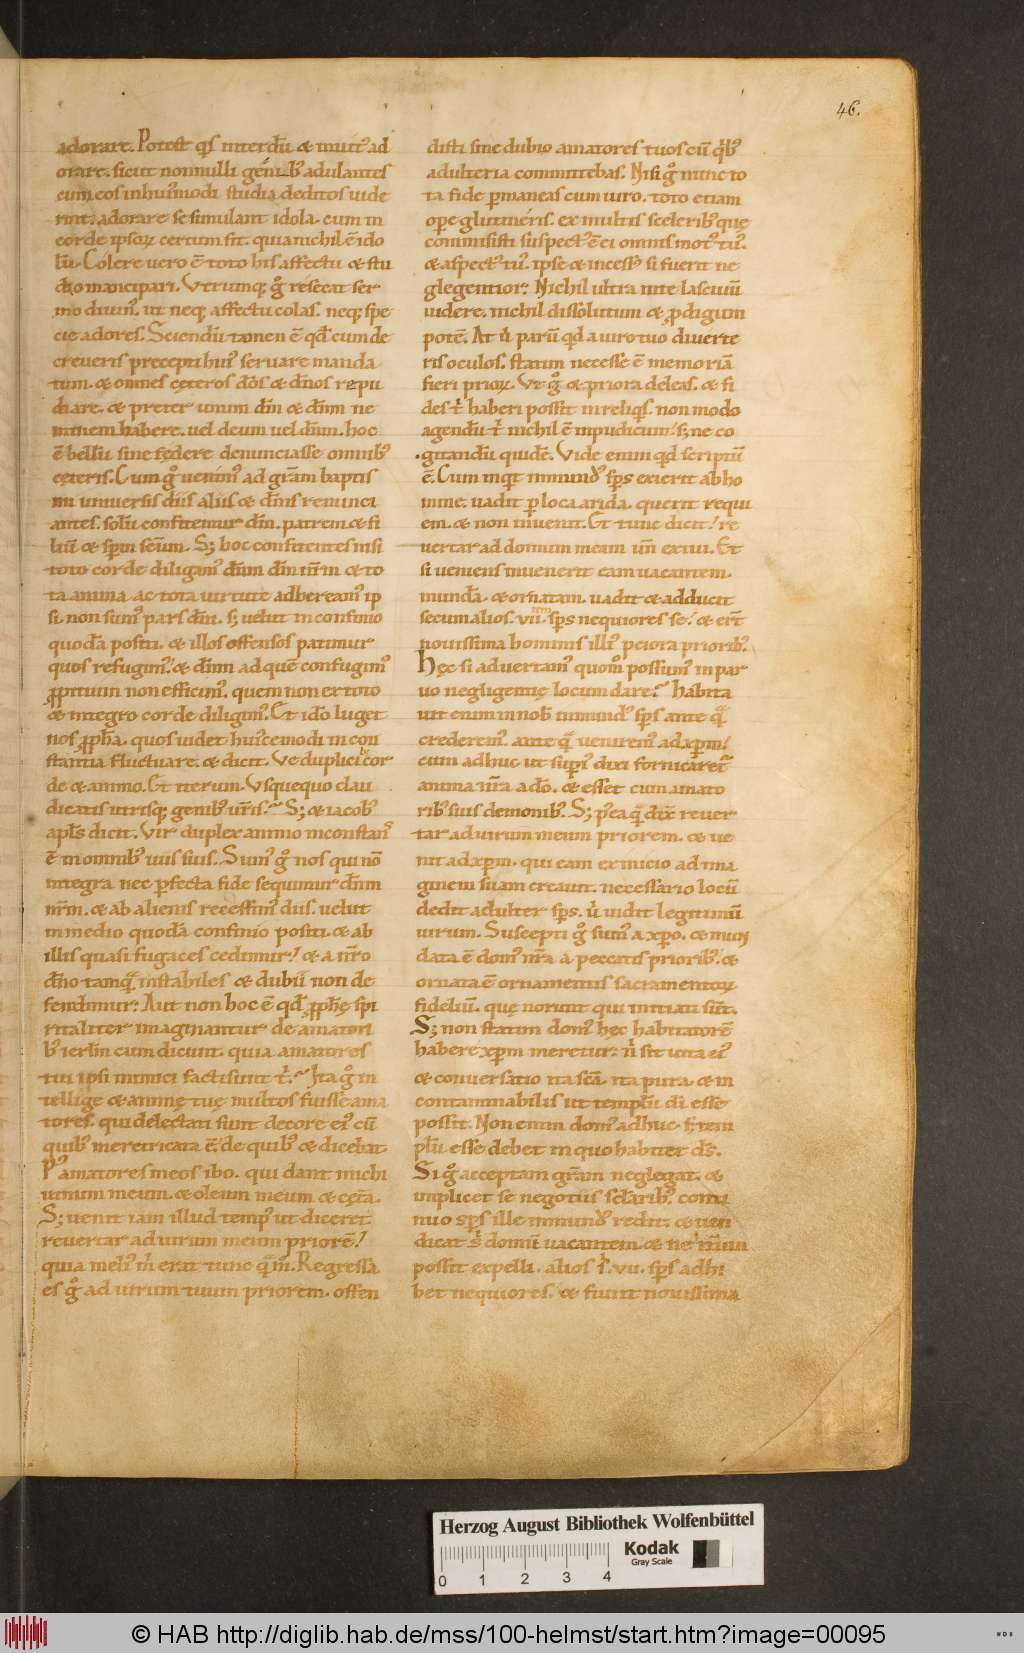 46.
adorare. Potest q̄s interdū & inuit᷒ ad
orare. sicut nonnulli gentib᷒ adulantes
cum eos in hui᷒modi studia deditos uide
rint. adorare se simulant idola. cum in
corde ipsoꝝ certum sit. quia nichil ē ido
lū. Colere uero ē toto his affectu & stu
dio mancipari. Vtrumq; g̊ resecat ser
mo diuin᷒. ut neq; affectu colas. neq; spe
cie adores. Sciendū tamen ē qđ cum de
creueris precepti hui᷒ seruare manda
tum. & omnes cęteros dōs & dn̄os repu
diare. & preter unum dm̄ & dnm̄ ne
minem habere. uel deum uel dnm̄. hoc
ē bellū sine fędere denunciasse omnib᷒
ceteris. Cum g̊ uenim᷒ ad grām baptis
mi uniuersis diis aliis & dn̄is renunci
antes. solū confitemur dm̄. patrem & fi
liū & spm̄ scm̄. S; hoc confitentes nisi
toto corde diligam᷒ dnm̄ dm̄ nr̄m & to
ta anima ac tota uirtute adheream᷒ ip
si. non sum᷒ pars dn̄i. s; uelut in confinio
quodā positi. & illos offensos patimur
quos refugim᷒. & dnm̄ ad quē confugim᷒
ꝓpitium non efficim᷒. quem non ex toto
& integro corde diligim᷒. Et ideo luget
nos ꝓpħa. quos uidet hui᷒cemodi incon
stantia fluctuare. & dicit. Ve duplici cor
de & animo. Et iterum. Vsquequo clau
dicatis utrisq; genib᷒ ur̄is. S; & iacob᷒
apl̄s dicit. Vir duplex animo inconstans
ē in omnib᷒ uiis suis. Sum᷒ g̊ nos qui nō
integra nec ꝑfecta fide sequimur dnm̄
nr̄m. & ab alienis recessim᷒ diis. uelut
in medio quodā confinio positi. & ab
illis quasi fugaces cedimur. & a nr̄o
dn̄o tamquā instabiles & dubii non de
fendimur. Aut non hoc ē qđ ꝓpħę spi
ritaliter imaginantur de amatori
b᷒ ierłm cum dicunt. quia amatores
tui ipsi inimici facti sunt t̄. Ita g̊ in
tellige & animę tuę multos fuisse ama
tores. qui delectati sunt decore ei᷒ cū
quib᷒ meretricata ē. de quib᷒ & dicebat.
P᷒ amatores meos ibo. qui dant michi
uinum meum. & oleum meum. & cęt̄a.
S; uenit iam illud temp᷒ ut diceret
reuertar ad uirum meum priorē.
quia meli᷒ m̄ erat tunc quā m̄. Regressa
es g̊ ad uirum tuum priorem. offen
disti sine dubio amatores tuos cū qib᷒
adulteria committebas. Nisi g̊ nunc to
ta fide ꝑmaneas cum uiro. toto etiam
oꝑe glutineris. ex multis sceleribus quę
commisisti suspect᷒ ē ei omnis mot᷒ tu᷒.
& aspect᷒ tu᷒. ipse & incess᷒ si fuerit ne
glegentior. Nichil ultra in te lasciuū
uidere. nichil dissolutum & ꝓdigum
potē. At u̇ parū qđ a uiro tuo diuerte
ris oculos. statim necesse ē memoriā
fieri prioꝝ. Vt g̊ & priora deleas. & fi
des t̄ haberi possit in reliqis. non modo
agendū t̄ nichil ē inpudicum. s; ne co
gitandū quidē. Vide enim qđ scriptū
ē. Cum inqit inmund᷒ sps̄ exierit ab ho
mine. uadit ꝑ loca arida. querit requi
em. & non inuenit. Et tunc dicit. re
uertar ad domum meam un̄ exiui. Et
si ueniens inuenerit eam uacantem.
mundā. & ornatam. uadit & adducit
secum alios. vii.tem sps̄ nequiores se. & er̄t
nouissima hominis illi᷒ peiora priorib᷒.
Hęc si aduertam᷒ quom̊ possum᷒ in par
uo negligentię locum dare. Habita
uit enim in nob̄ inmund᷒ sps̄ ante quā
crederem᷒. ante quā uenirem᷒ ad xp̄m.
cum adhuc ut supri᷒ dixi fornicaret᷒
anima nr̄a a do̅. & esset cum amato
rib᷒ suis demonib᷒. S; p᷒ea quā dix̄ reuer
tar ad uirum meum priorem. & ue
nit ad xp̄m. qui eam ex inicio ad ima
ginem suam creauit. necessario locū
dedit adulter sps̄. u̇ uidit legitimū
uirum. Suscepti g̊ sum᷒ a xp̄o. & mun
data ē dom᷒ nr̄a a peccatis priorib᷒. &
ornata ē ornamentis sacramentoꝝ
fideliū. quę norunt qui initiati sūt.
S; non statim dom᷒ hęc habitatorē
habere xp̄m meretur. n̄ sit uita ei᷒
& conuersatio ita scā. ita pura. & in
contaminabilis ut templū di esse
possit. Non enim dom᷒ adhuc. s; tem
plū esse debet in quo habitet ds̄.
Si g̊ acceptam grām neglegat. &
implicet se negotiis sclarib᷒. conti
nuo sps̄ ille inmund᷒ redit. & uen
dicat s̄ domū uacantem. & ne it̄um
possit expelli. alios s̄. vii. sps̄ adhi
bet nequiores. & fiunt nouissima
Herzog August Bibliothek Wolfenbüttel
Kodak
Gray Scale
0 1 2 3 4
© HAB http://diglib.hab.de/mss/100-helmst/start.htm?image=00095
HAB